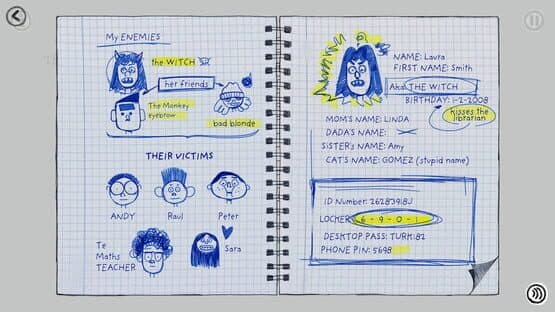 MY ENEMIES
the WITCH
her friends
The Monkey
eyebrow
bad blonde
THEIR VICTIMS
ANDY
Raul
Peter
Te
Maths
TEACHER
Sara
NAME: Laura
FIRST NAME: Smith
Aka: THE WITCH
BIRTHDAY: 1-2-2008
Kisses the
librarian
MOM'S NAME: LINDA
DADA'S NAME:
SISTER'S NAME: Amy
CAT'S NAME: GOMEZ (stupid name)
ID Number:
LOCKER: 6-9-0-1
DESKTOP PASS: TURK:82
PHONE PIN: 5698